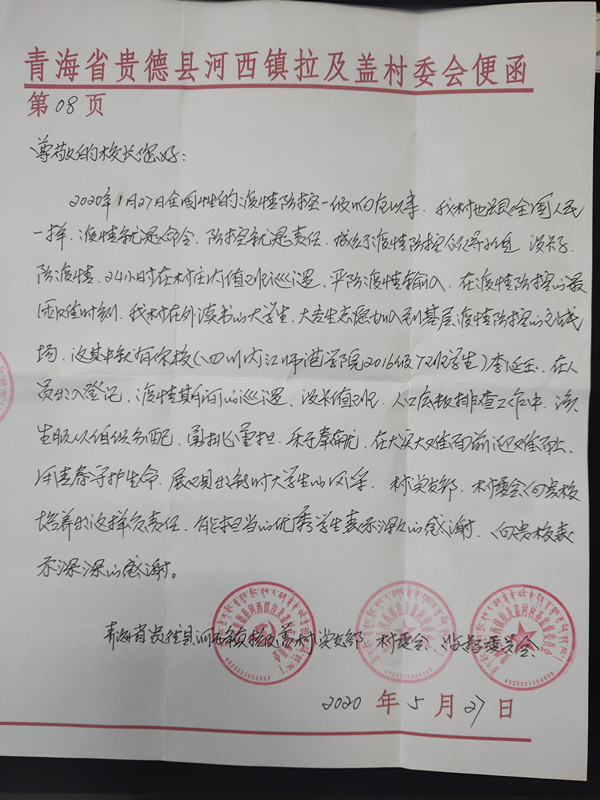 青海省贵德县河西镇拉及盖村委会便函
第08页
尊敬的校长您好:
2020年1月27日全国性的疫情防控一级响应以来,我村也跟全国人民
一样,疫情就是命令,防控就是责任,成立了疫情防控领导小组,设卡子,
防疫情,24小时在村庄内值班巡逻,严防疫情输入,在疫情防控的最
困难时刻,我村在外读书的大学生,大专生志愿加入到基层疫情防控的主战
场,这其中就有你校(四川内江师范学院2016级7班学生)李延玉,在人
员出入登记,疫情期间的巡逻,设卡值班,人口底数排查工作中,该
生服从组织分配,勇挑重担,乐于奉献,在大灾大难面前迎难而上,
用青春守护生命,展现出新时大学生的风采,村党支部,村委会向贵校
培养出这样负责任,能担当的优秀学生表示深深的感谢,向贵校表
示深深的感谢。
青海省贵德县河西镇拉及盖村党支部,村委会,监督委员会
2020年5月27日